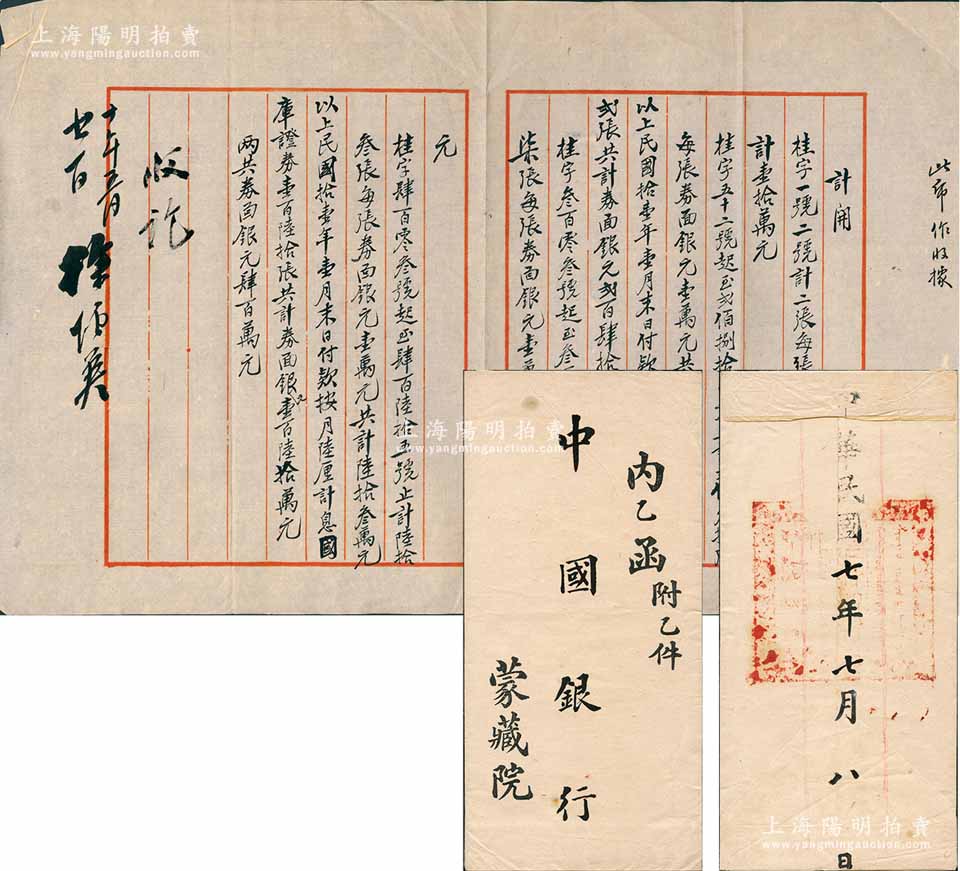 此帋作收據
計開
桂字一號二號計二張每張
計壹拾萬元
桂字五十二號起至弍佰捌拾
每張券面銀元壹萬元共
以上民國拾壹年壹月末日付款按
弍張共計券面銀元弍百肆拾
桂字叁百零叁號起至叁
柒張每張券面銀元壹萬
元
桂字肆百零叁號起至肆百陸拾五號止計陸拾
叁張每張券面銀元壹萬元共計陸拾叁萬元
以上民國拾壹年壹月末日付款按月陸厘計息國
庫證券壹百陸拾張共計券面銀元壹百陸拾萬元
兩共券面銀元肆百萬元
收訖
十年五月
廿一日
內乙函附乙件
中國銀行
蒙藏院
中華民國七年七月八日
上海陽明拍賣
www.yangmingauction.com
上海陽明拍賣
www.yangmingauction.com
上海陽明拍賣
www.yangmingauction.com
上海陽明拍賣
www.yangmingauction.com